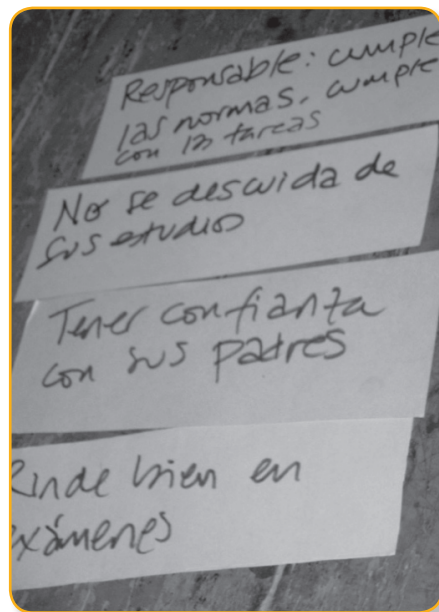 Responsable: cumple
las normas, cumple
con las tareas
No se descuida de
sus estudios
Tener confianza
con sus padres
Rinde bien en
exámenes